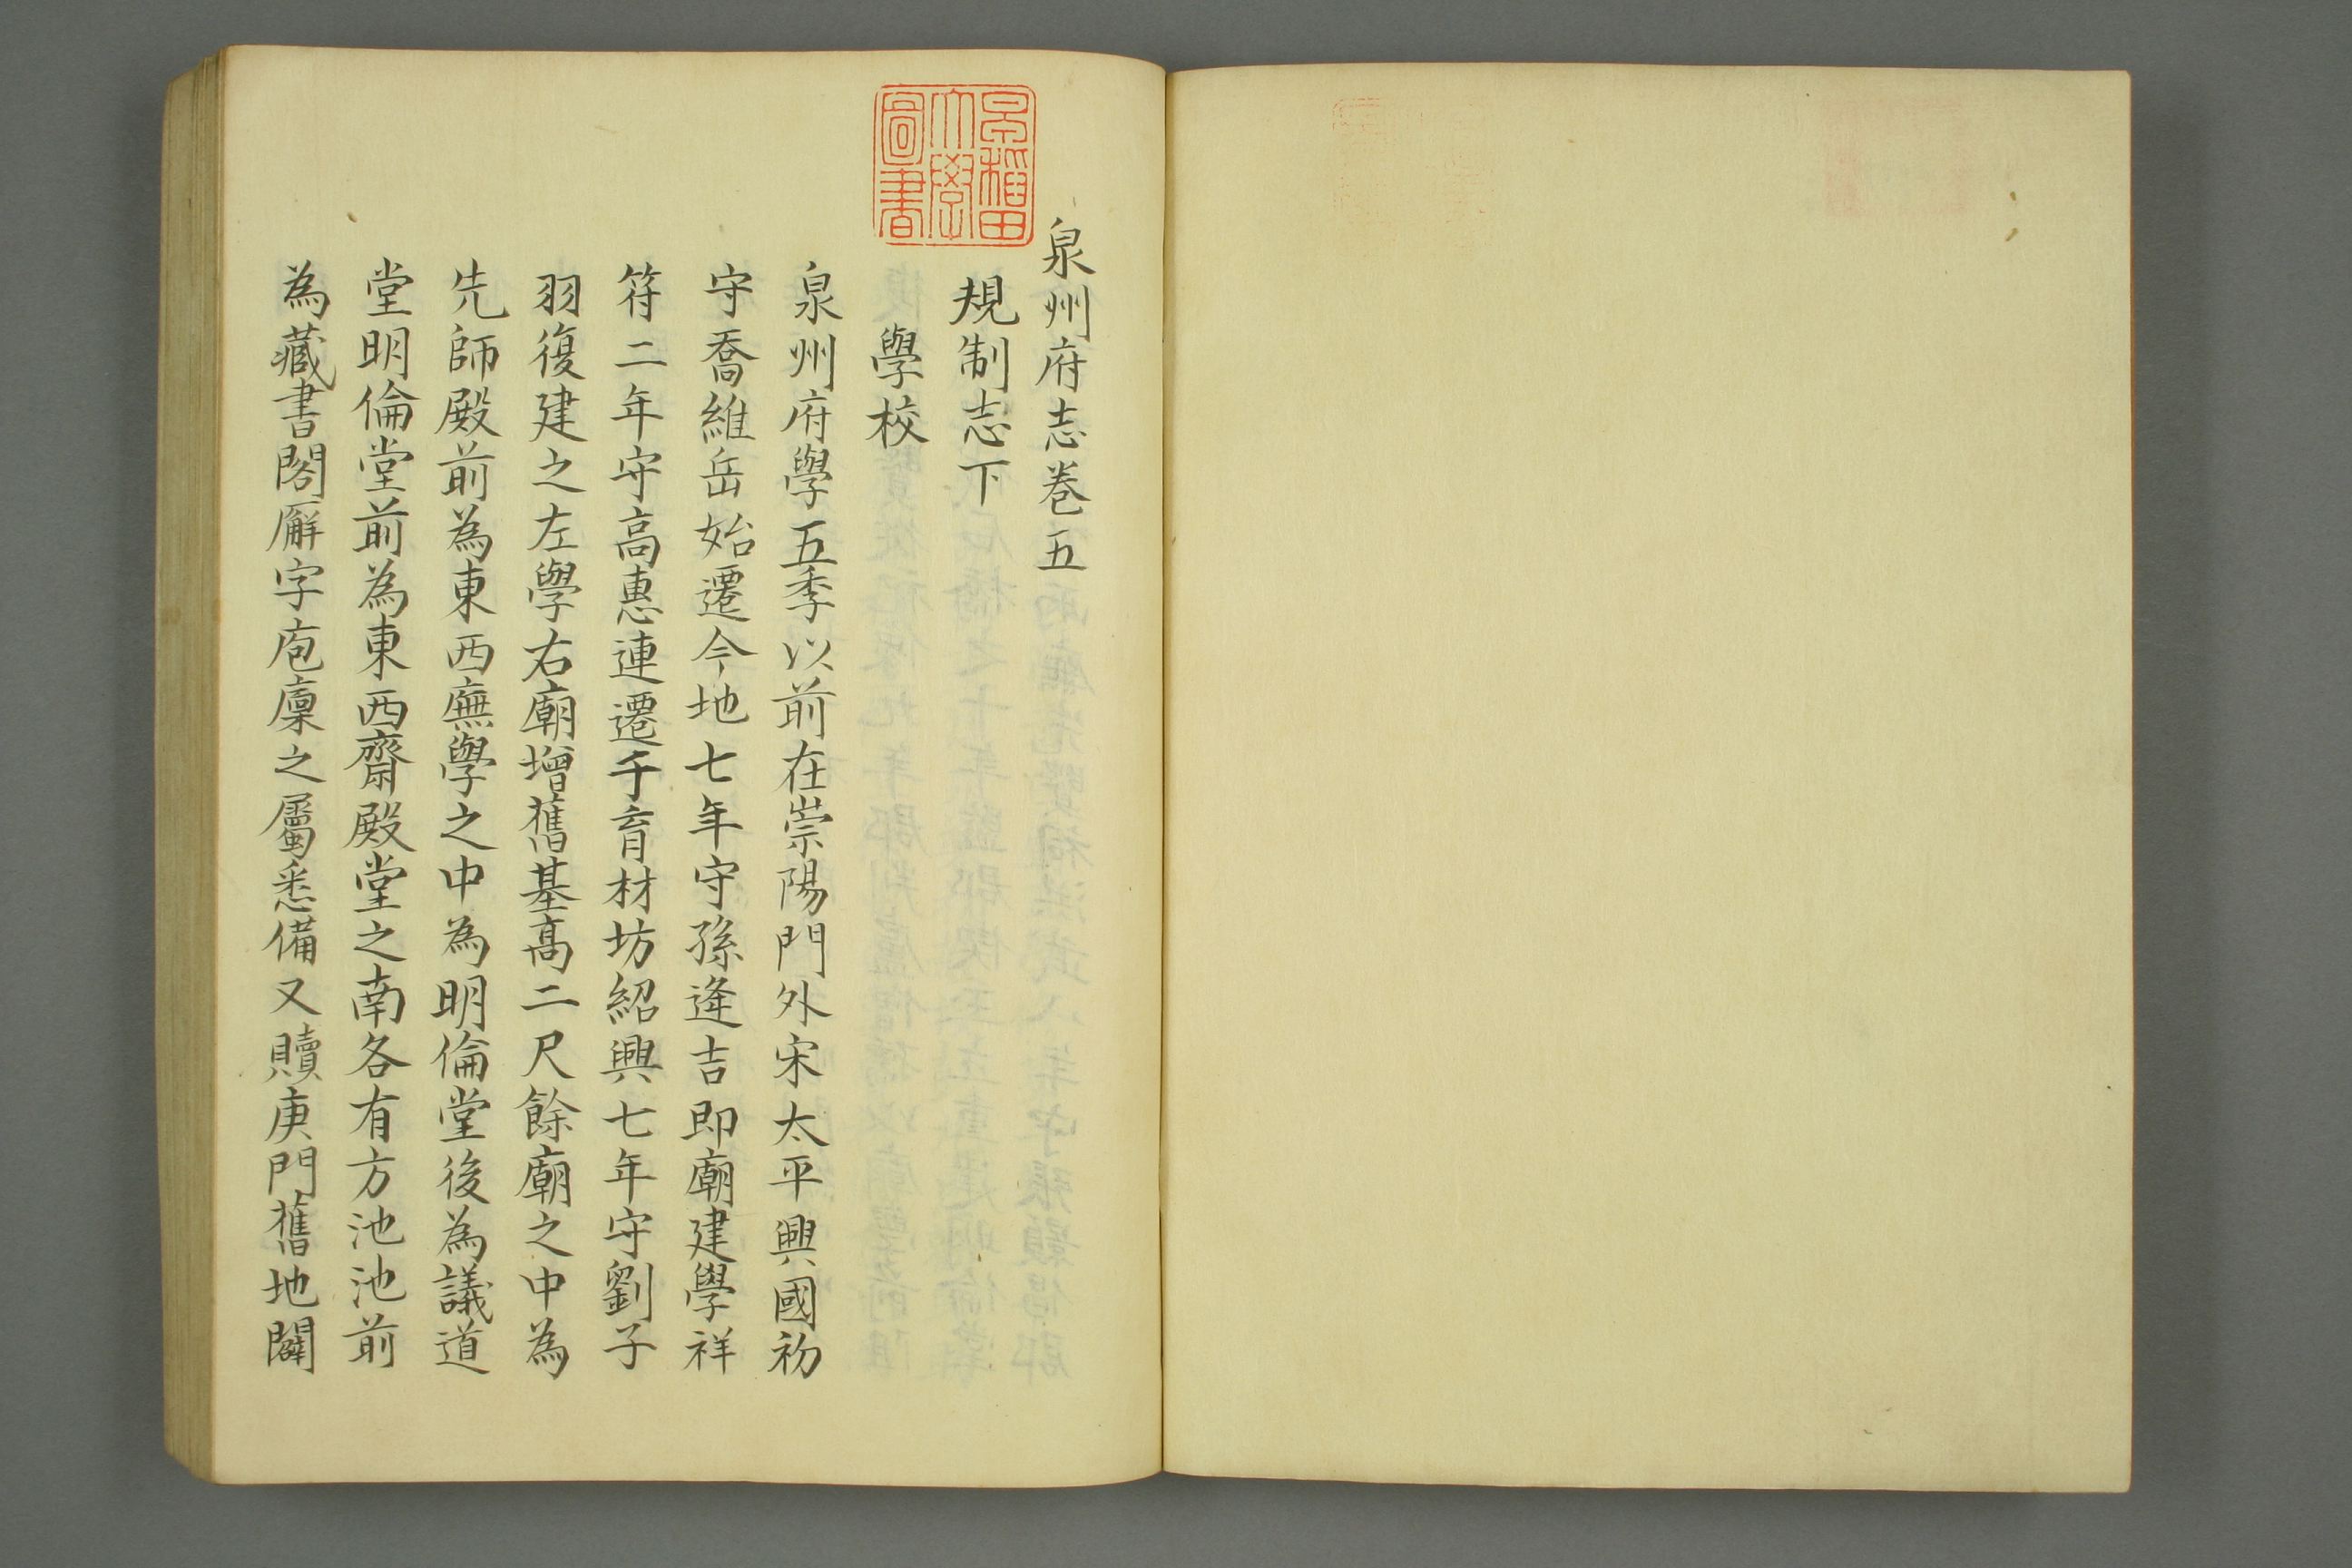 泉州府志巻五
規制志下
學校
泉州府學五季以前在崇陽門外宋太平興國初
守喬維岳始遷今地七年守孫逢吉即廟建學祥
符二年守高惠連遷于育材坊紹興七年守劉子
羽復建之左學右廟增舊基髙二尺餘廟之中為
先師殿前為東西廡學之中為明倫堂後為議道
堂明倫堂前為東西齋殿堂之南各有方池池前
為藏書閣廨字庖廩之屬悉備又贖庚門舊地闢
早稻田
大學
圖書